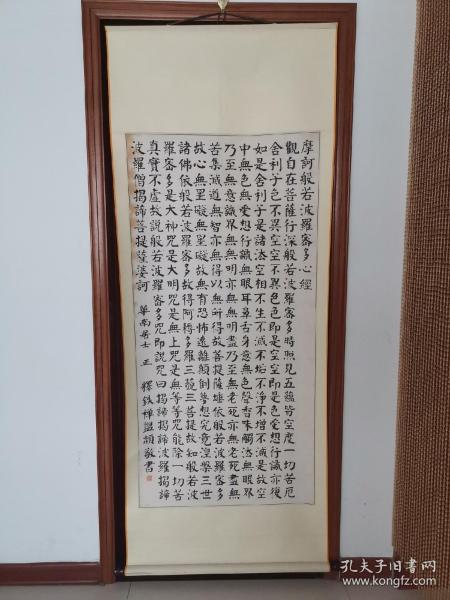 摩訶般若波羅蜜多心經
觀自在菩薩行深般若波羅蜜多時照見五蘊皆空度一切苦厄
舍利子色不異空空不異色色即是空空即是色受想行識亦復
如是舍利子是諸法空相不生不滅不垢不淨不增不減是故空
中無色無受想行識無眼耳鼻舌身意無色聲香味觸法無眼界
乃至無意識界無無明亦無無明盡乃至無老死亦無老死盡無
苦集滅道無智亦無得以無所得故菩提薩埵依般若波羅蜜多
故心無罣礙無罣礙故無有恐怖遠離顛倒夢想究竟涅槃三世
諸佛依般若波羅蜜多故得阿耨多羅三藐三菩提故知般若波
羅蜜多是大神咒是大明咒是無上咒是無等等咒能除一切苦
真實不虛故說般若波羅蜜多咒即說咒曰揭諦揭諦波羅揭諦
波羅僧揭諦菩提薩婆訶 華南居士 正 釋鉄禅盥頮敬書
孔夫子旧书网
www.kongfz.com